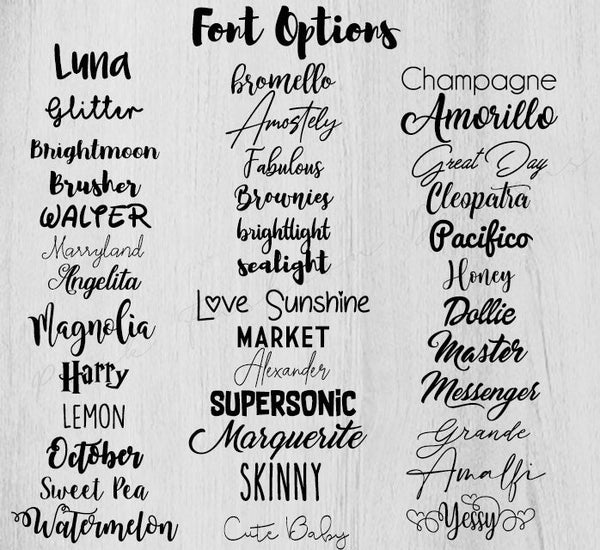 Font Options
Luna
Glitter
Brightmoon
Brusher
WALTER
Marryland
Angelita
Magnolia
Harry
LEMON
October
Sweet Pea
Watermelon
bromello
Amostely
Fabulous
Brownies
brightlight
sealight
Love Sunshine
MARKET
Alexander
SUPERSONiC
Marguerite
SKINNY
Cute Baby
Champagne
Amorillo
Great Day
Cleopatra
Pacifico
Honey
Dollie
Master
Messenger
Grande
Amalfi
Yessy